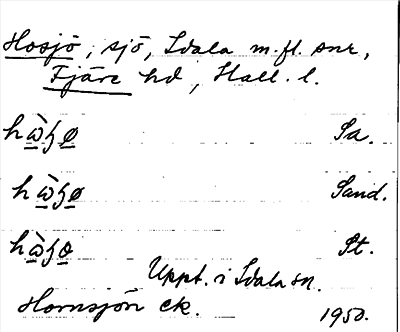 Hosjö, sjö, Idala m.fl. snr,
Fjäre hd, Hall. l.
Sa.
Sand.
St.
Uppt. i Idala sn.
Hornsjön ek.
1950.